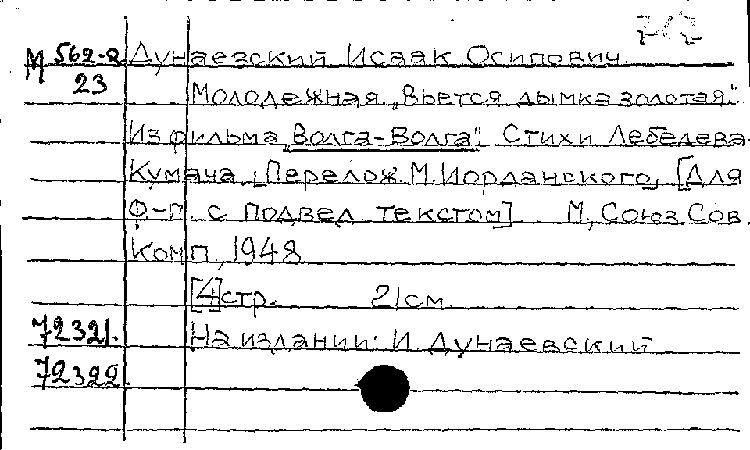 М 562-2 Дунаевский Исаак Осипович
23
Молодежная „Вьется дымка золотая".
Из фильма „Волга-Волга". Стихи Лебедева-
Кумача. Перелож. М. Иорданского, [Для
Ф-п. с подвед текстом] М, Союз Сов
Комп, 1948
[4]стр. 21см
72321. На издании: И Дунаевский
72322